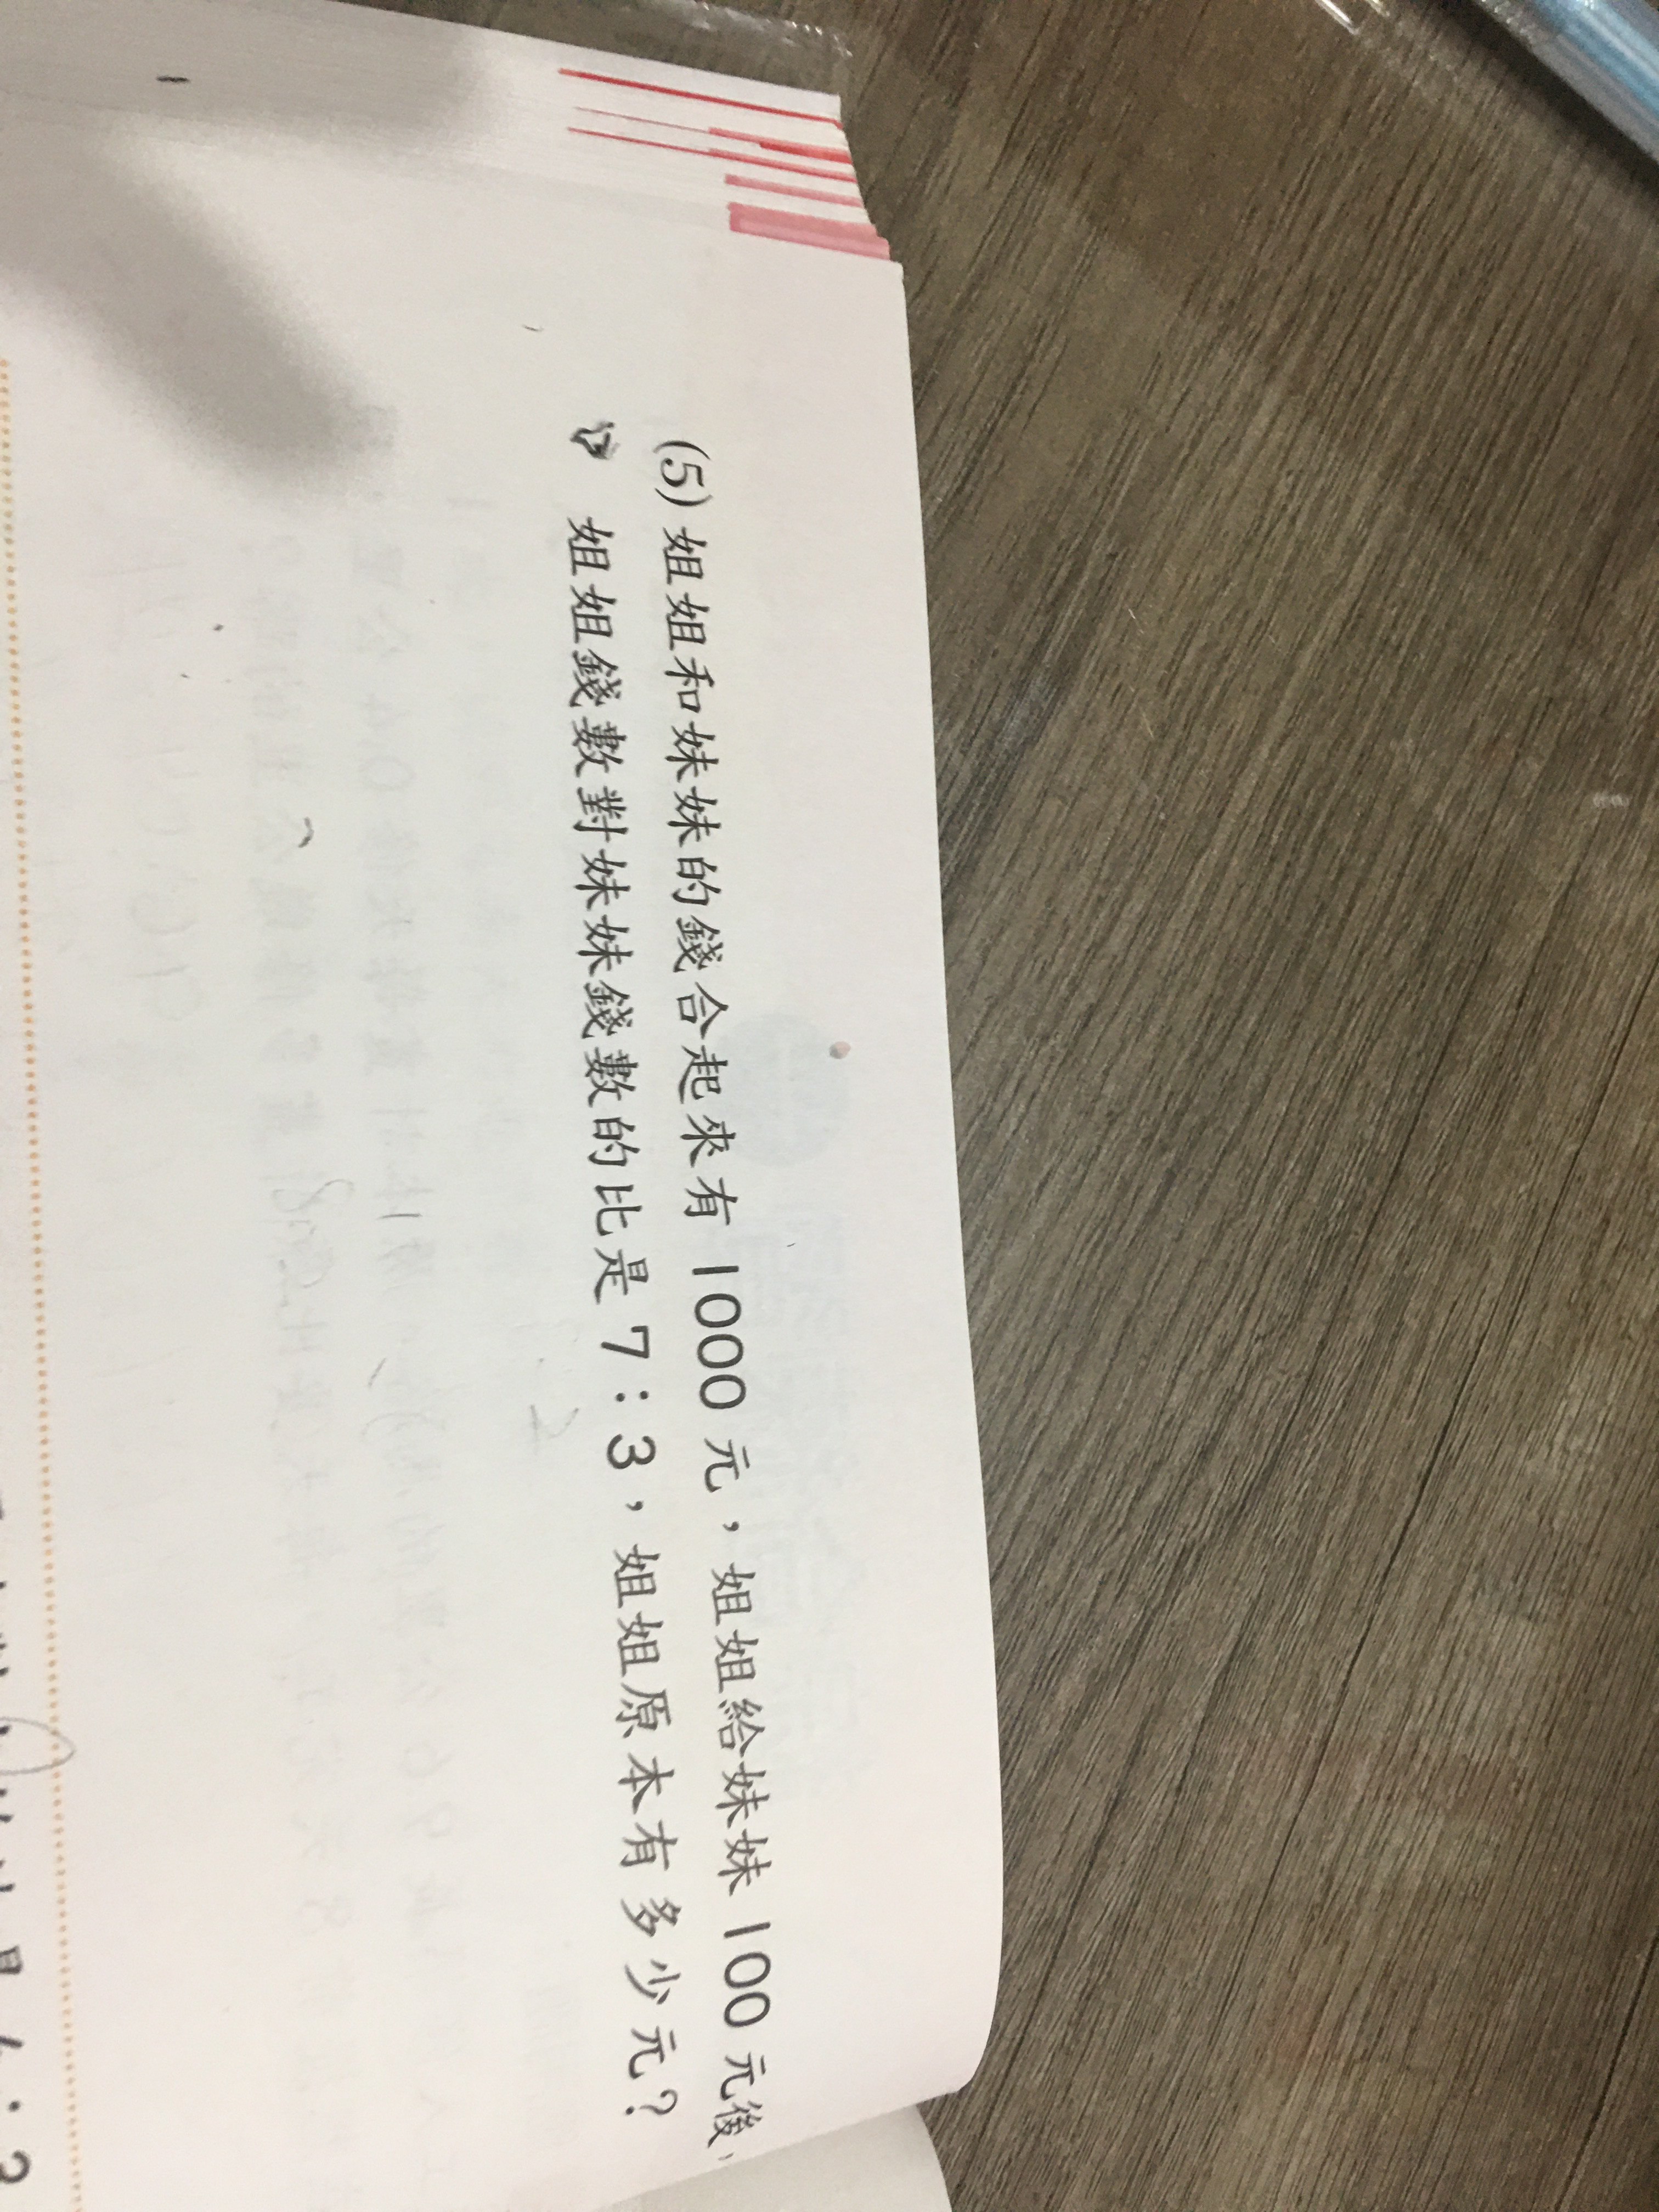 (5)姐姐和妹妹的錢合起來有1000元，姐姐給妹妹100元後，
姐姐錢數對妹妹錢數的比是7：3，姐姐原本有多少元？